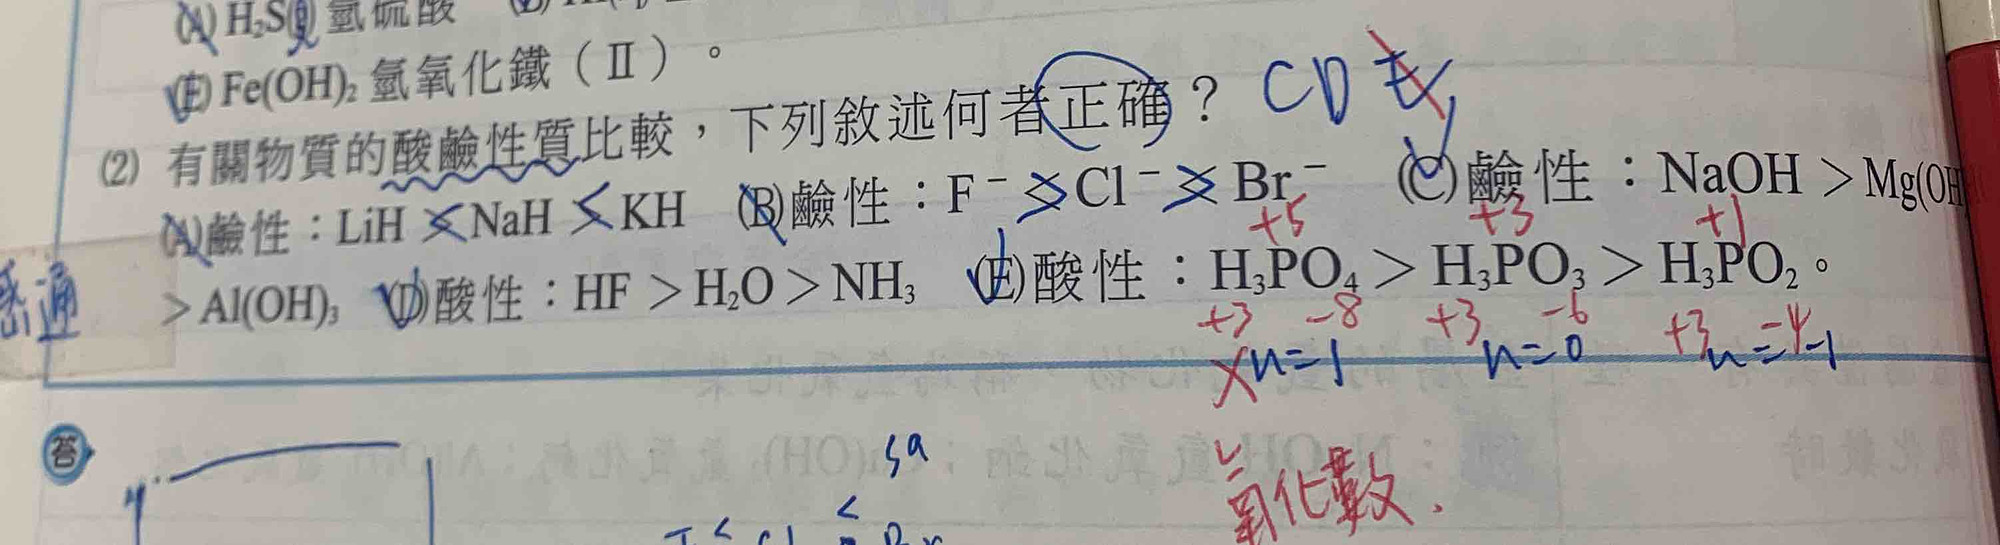 (A) H₂S 氫硫酸
(E) Fe(OH)₂ 氫氧化鐵（Ⅱ）。
(2) 有關物質的酸鹼性質比較，下列敘述何者正確？ CD E
(A)鹼性：LiH < NaH < KH (B)鹼性：F⁻ > Cl⁻ > Br⁻ (C)鹼性：NaOH > Mg(OH
+5 +3 +1
> Al(OH)₃ (D)酸性：HF > H₂O > NH₃ (E)酸性：H₃PO₄ > H₃PO₃ > H₃PO₂。
+3 -8 +3 -6 +3 -4
通
n=1 n=0 n=-1
答
氧化數.